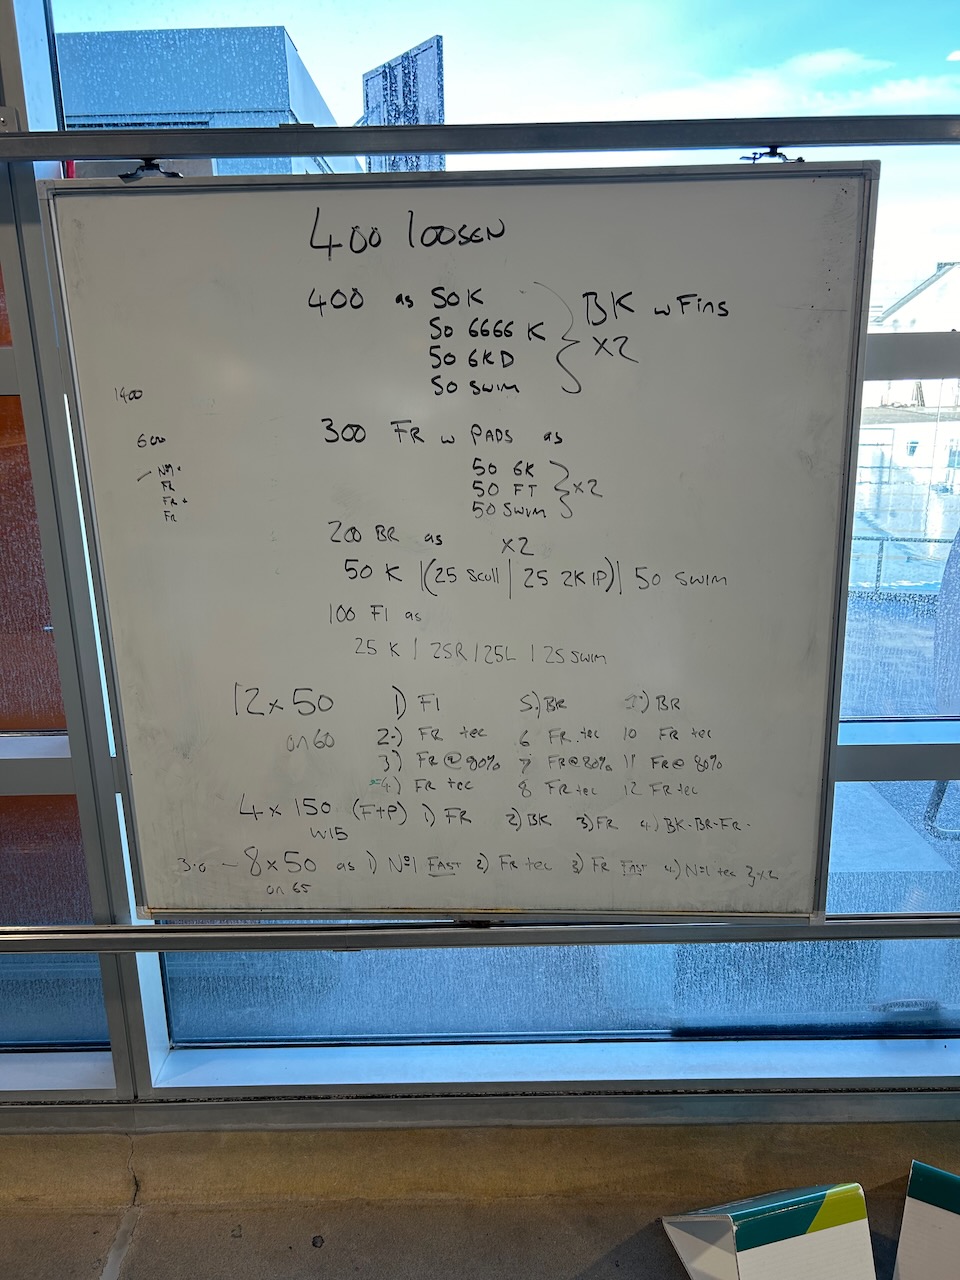 400 LOOSEN
400 as 50 K
50 6666 K
50 6KD
50 SWIM
BK w Fins
x2
1400
600
No1
FR
FR
FR
300 FR w PADS as
50 6K
50 FT
50 SWIM
x2
200 BR as x2
50 K |(25 Scull | 25 2K 1P)| 50 SWIM
100 FI as
25 K | 25R | 25L | 25 SWIM
12 x 50 1) FI 5) BK 9) BR
on 60 2) FR tec 6 FR tec 10 FR tec
3) FR @ 80% 7 FR @ 80% 11 FR @ 80%
4) FR tec 8 FR tec 12 FR tec
4 x 150 (F+P) 1) FR 2) BK 3) FR 4) BK-BR-FR
W15
3:0 - 8 x 50 as 1) No1 FAST 2) FR tec 3) FR FAST 4) No1 tec } x2
on 65